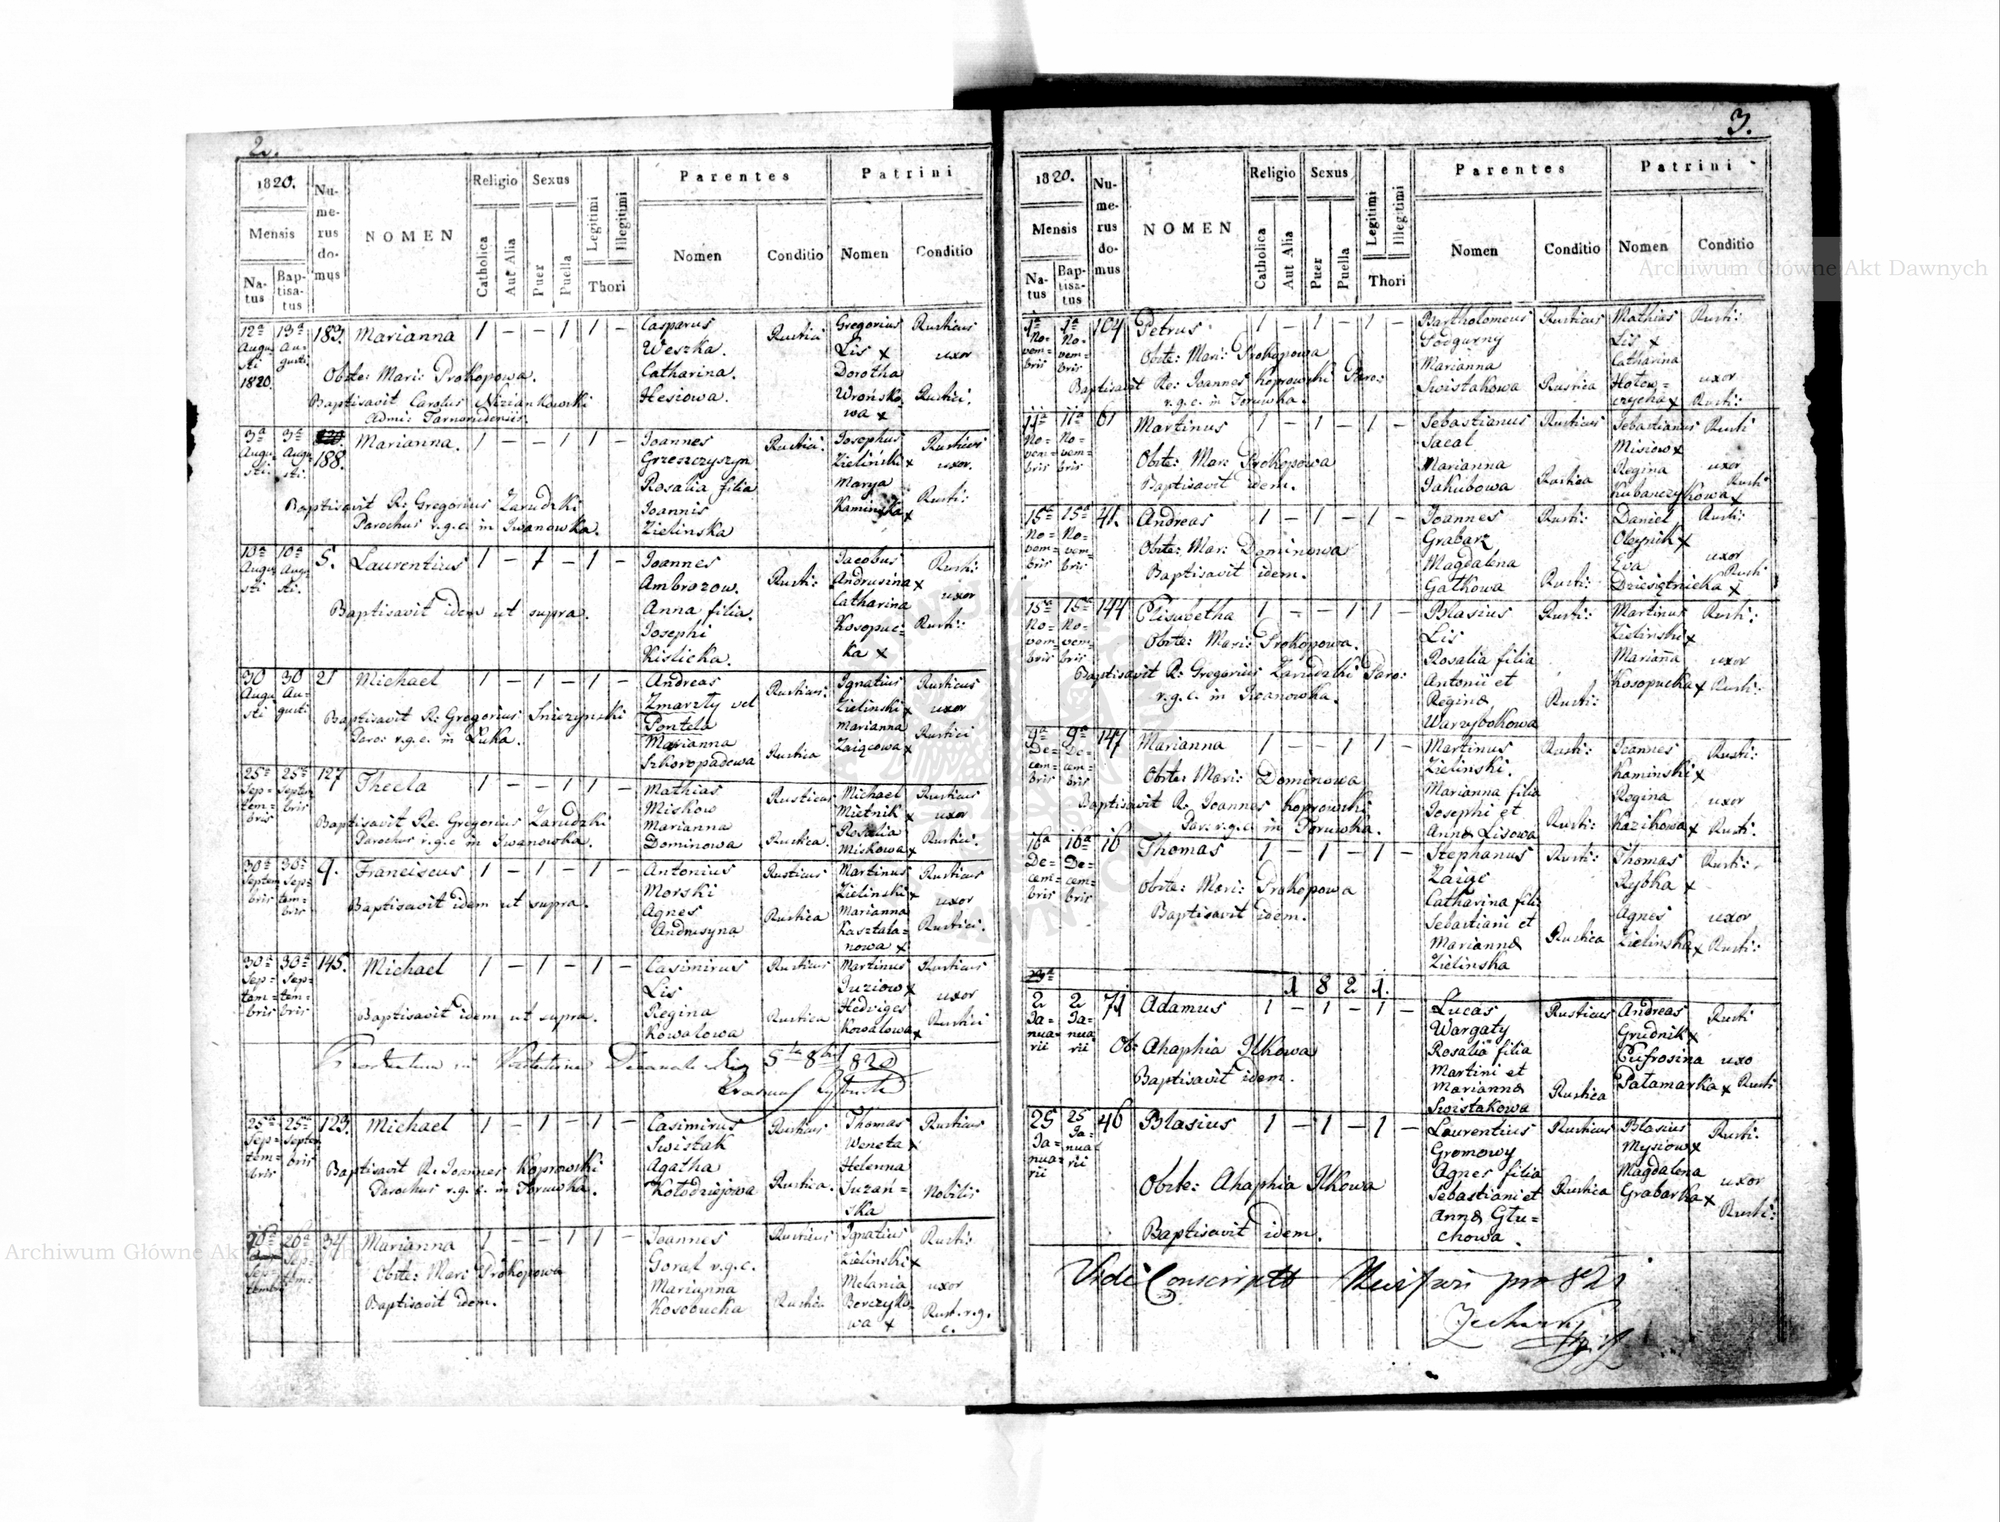 2.
1820. Numerus domus NOMEN Religio Sexus Legitimi Illegitimi Parentes Patrini
Mensis Catholica Aut Alia Puer Puella Thori Nomen Conditio Nomen Conditio
Natus Baptisatus
12a Augusti 1820. 13a Augusti 183. Marianna 1 – – 1 1 – Casparus Weszka. Catharina. Hesiowa. Rustici Gregorius Lis x Dorotha Wrońskowa x Rusticus uxor Rustici.
Obste: Mari: Prokopowa.
Baptisavit Carolus Niziankowski
Admi: Tarnorudensis.
3a Augusti 3a Augusti 188. Marianna. 1 – – 1 1 – Joannes Grzeszczyszyn Rosalia filia Joannis Zielinska Rustici Josephus Zieliński x Marya Kamińska x Rusticus uxor. Rusti:
Baptisavit R. Gregorius Zarudzki
Parochus r.g.c. in Iwanowka.
10a Augusti 10a Augusti 5. Laurentius 1 – 1 – 1 – Joannes Ambrozow. Anna filia. Josephi Kislicka. Rusti: Jacobus Andrusina x Catharina Kosopucka x Rusti: uxor Rusti:
Baptisavit idem ut supra.
30 Augusti 30 Augusti 21 Michael 1 – 1 – 1 – Andreas Zmarzty vel Pontela Marianna Szkoropadowa Rusticus: Rustica Ignatius Zielinski x Marianna Zaięcowa x Rusticus uxor Rustici
Baptisavit R. Gregorius Snieżynski
Paro: r.g.c. in Łuka.
25a Septembris 25a Septembris 127 Thecla 1 – – 1 1 – Mathias Miskow Marianna Dominowa Rusticus Rustica. Michael Mietnik x Rosalia Miskowa x Rusticus uxor Rustici.
Baptisavit R. Gregorius Zarudzki
Parochus r.g.c in Iwanowka.
30a Septembris 30a Septembris 9. Franciscus 1 – 1 – 1 – Antonius Morski Agnes Andrusyna Rusticus Rustica Martinus Zielinski x Marianna Kasztalanowa x Rusticus uxor Rustici.
Baptisavit idem ut supra.
30a Septembris 30a Septembris 145. Michael 1 – 1 – 1 – Casimirus Lis Regina Kowalowa Rusticus Rustica Martinus Juziow x Hedviges Kowalowa x Rusticus uxor Rustici
Baptisavit idem ut supra.
25a Septembris 25a Septembris 123. Michael 1 – 1 – 1 – Casimirus Swistak Agatha Kołodziejowa Rusticus Rustica. Thomas Weneta x Helenna Juzańska Rusticus Nobilis
Baptisavit R. Joannes Koprowski
Parochus r.g.c. in Toruwka.
26a Septembris 26a Septem: 34 Marianna 1 – – 1 1 – Joannes Goral r.g.c. Marianna Kosobucka Rusticus Rustica Ignatius Zielinski x Melania Berezykowa x Rusti: uxor Rust. r.g.c.
Obste: Mari: Prokopowa
Baptisavit idem.
3.
1820. Numerus domus NOMEN Religio Sexus Legitimi Illegitimi Parentes Patrini
Mensis Catholica Aut Alia Puer Puella Thori Nomen Conditio Nomen Conditio
Natus Baptisatus
1a Novembris 1a Novembris 104 Petrus 1 – 1 – 1 – Bartholomeus Podgurny Marianna Swistakowa Rusticus Rustica Mathias Lis x Catharina x Rusti: uxor Rusti:
Obste: Mari: Prokopowa
Baptisavit Re: Joannes Koprowski Paro:
r.g.c. in Toruwka.
11a Novembris 11a Novembris 61 Martinus 1 – 1 – 1 – Sebastianus Sacal Marianna Jakubowa Rusticus Rustica Sebastianus Misiow x Regina Kubanczykowa x Rusti uxor Rusti
Obste: Mar: Prokopowa
Baptisavit idem.
15a Novembris 15a Novembris 41. Andreas 1 – 1 – 1 – Joannes Grabarz Magdalena Gatkowa Rusti: Rusti: Daniel Oleynik x Eva Dziesiętnicka x Rusti: uxor Rusti
Obste: Mar: Dominowa
Baptisavit idem.
15a Novembris 15a Novembris 144 Elisabetha 1 – – 1 1 – Blasius Lis Rosalia filia Antonii et Regina Warzybokowa Rusti: Rusti: Martinus Zielinski x Marianna Kosopucka x Rusti: uxor Rusti:
Obste: Mari: Prokopowa.
Baptisavit R. Gregorius Zarudzki Paro:
r.g.c. in Iwanowka.
9a Decembris 9a Decembris 147 Marianna 1 – – 1 1 – Martinus Zielinski. Marianna filia Josephi et Anna Lisowa Rusti: Rusti: Joannes Kaminski x Regina Kazikowa x Rusti: uxor Rusti.
Obste: Mari: Dominowa
Baptisavit R. Joannes Koprowski
Par: r.g.c. in Toruwka.
16a Decembris 16a Decembris 16 Thomas 1 – 1 – 1 – Stephanus Zaięc Catharina filia Sebastiani et Marianna Zielinska Rusti: Rustica Thomas Rybka x Agnes Zielinska x Rusti: uxor Rusti:
Obste: Mari: Prokopowa
Baptisavit idem.
1 8 2 1.
2 Januarii 2 Januarii 71 Adamus 1 – 1 – 1 – Lucas Wargaty Rosalia filia Martini et Marianna Swistakowa Rusticus Rustica Andreas Grudnik x Eufrosina Patamarka x Rusti uxo Rusti
Ob: Ahaphia Ilkowa
Baptisavit idem.
25 Januarii 25 Januarii 46 Blasius 1 – 1 – 1 – Laurentius Gromowy Agnes filia Sebastiani et Anna Głuchowa. Rusticus Rustica Blasius Mysiow x Magdalena Grabarka x Rusti. uxor Rusti:
Obste: Ahaphia Ilkowa
Baptisavit idem.
Vidi
pro 821
Archiwum Główne Akt Dawnych
Archiwum Główne Akt Dawnych